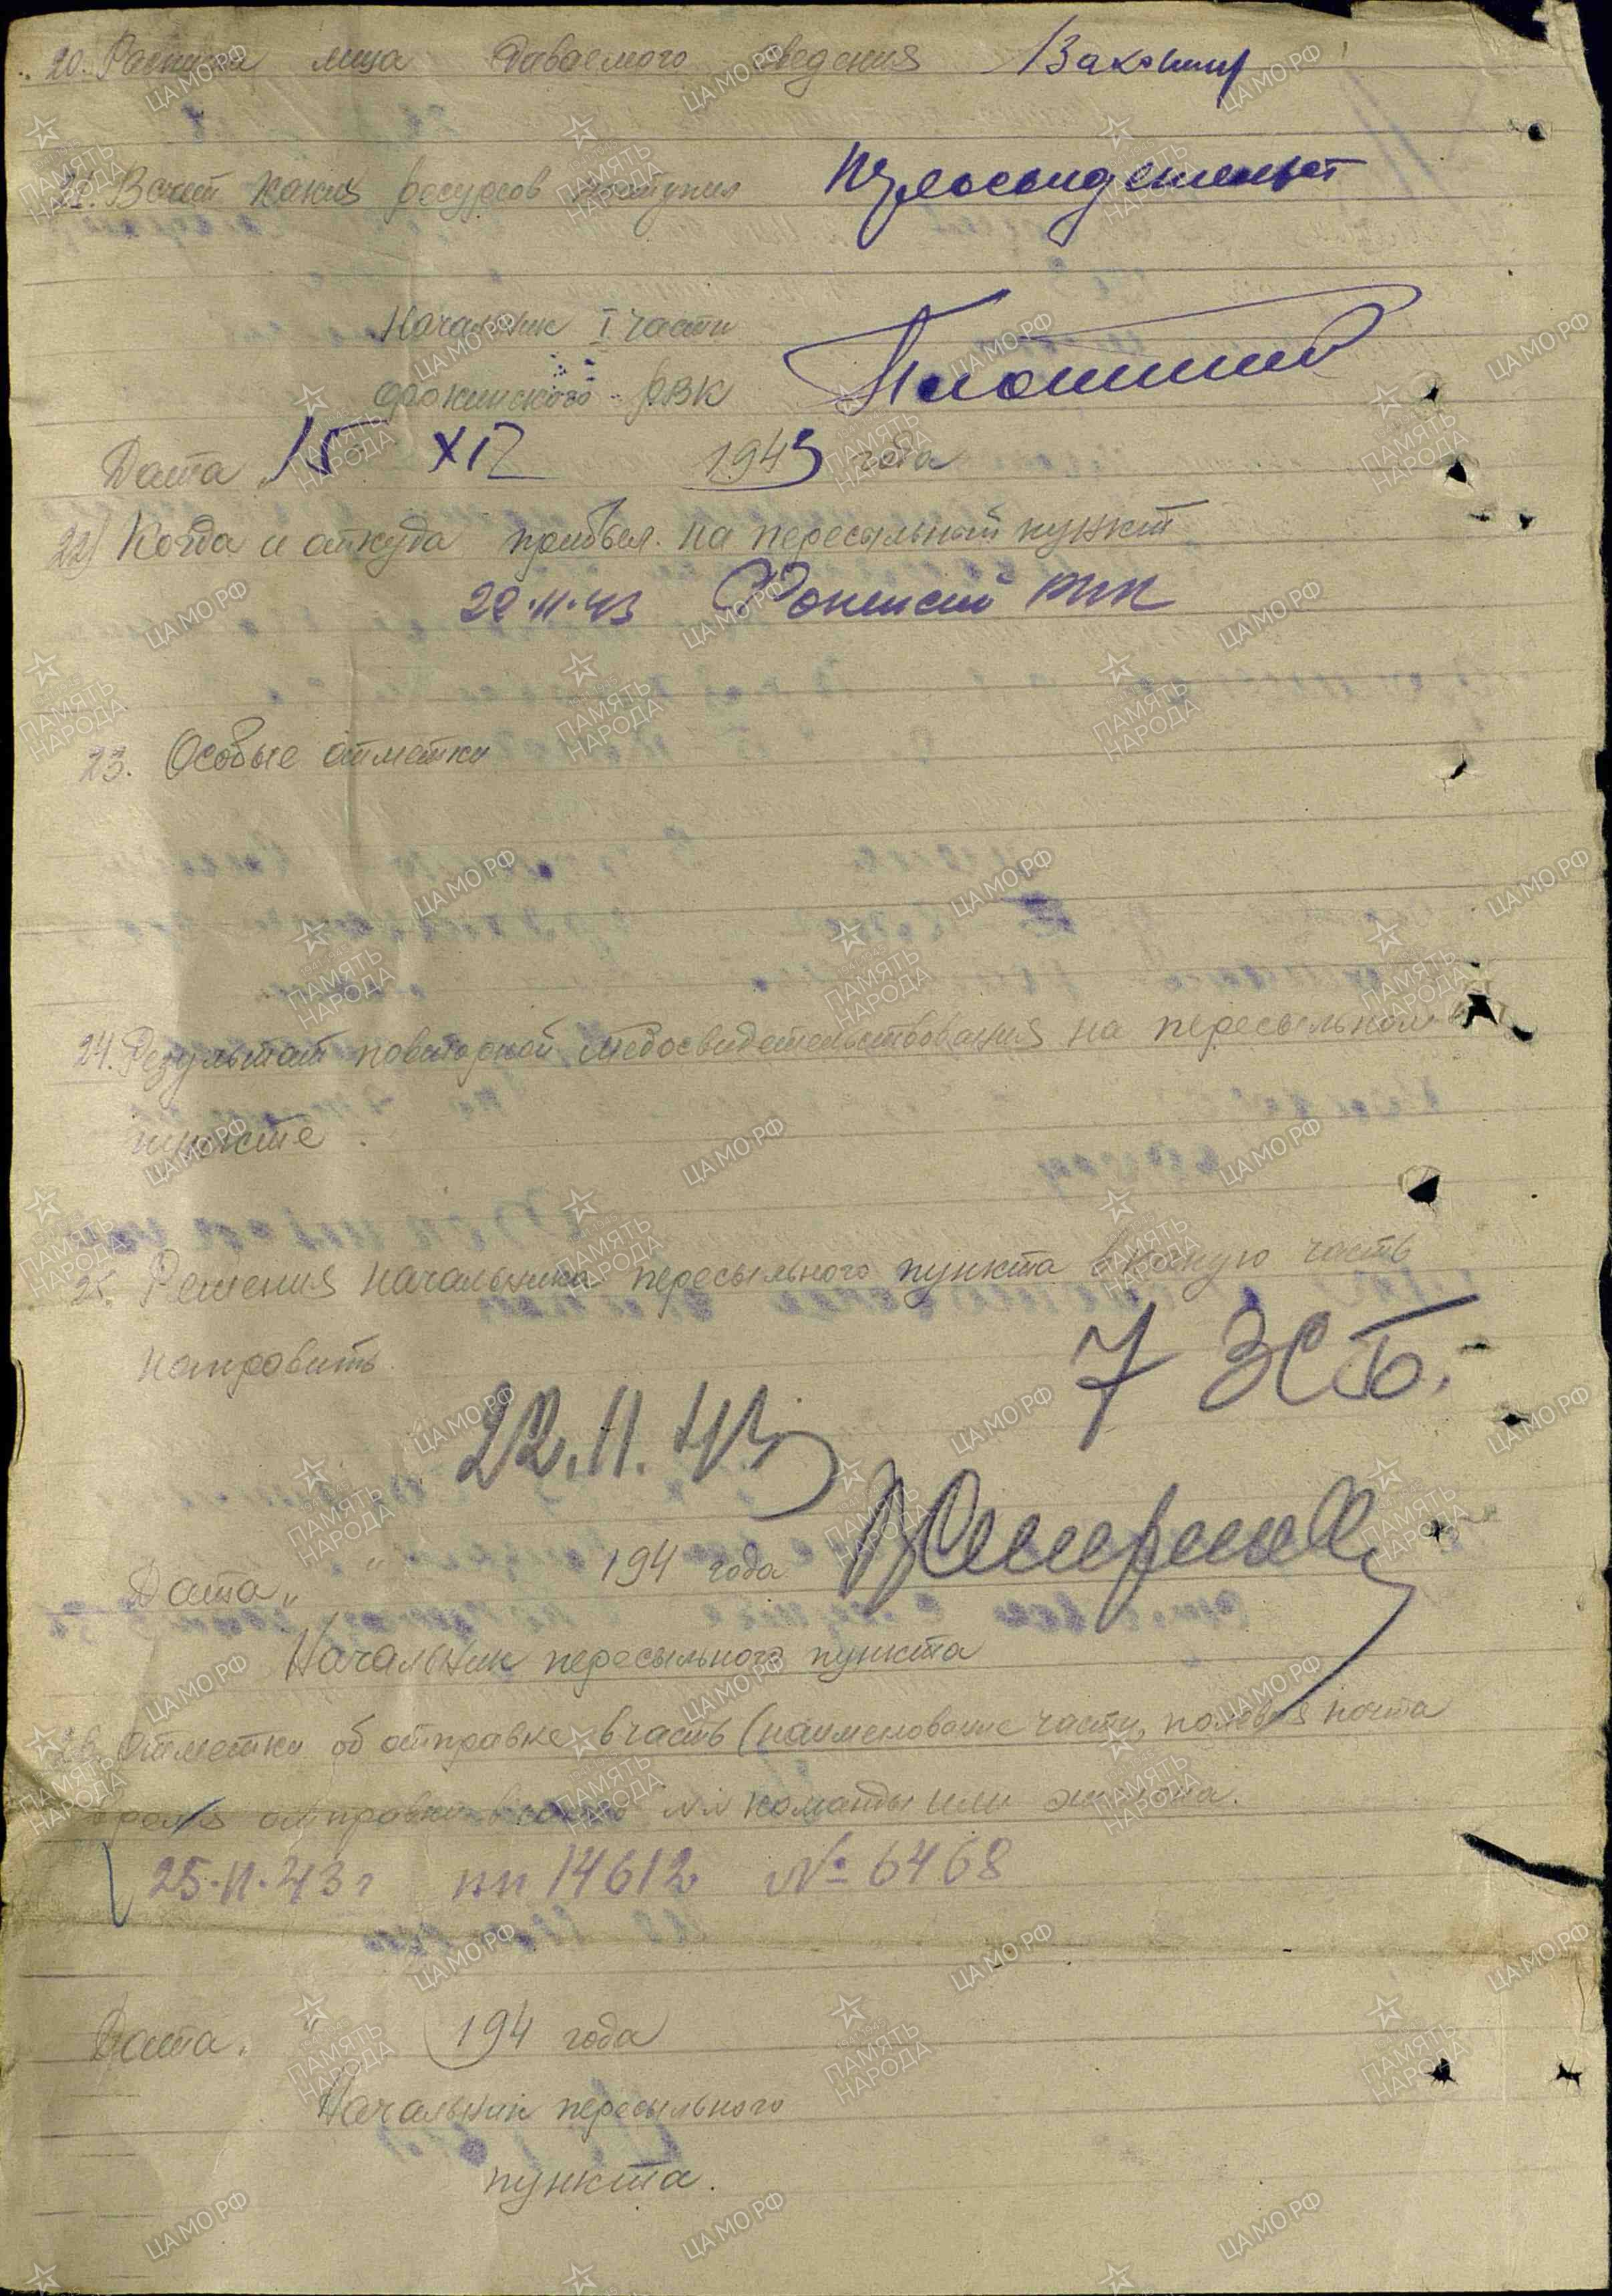 20. Расписка лица даваемого сведения
21. В счет каких ресурсов поступил
Начальник I части
Фокинского РВК
Дата "15" XII 1943 года
22) Когда и откуда прибыл на пересыльный пункт
22.11.43 Фокинский РВК
23. Особые отметки
24. Результат повторной медосвидетельствования на пересыльном
пункте
25. Решения начальника пересыльного пункта в какую часть
направить
7 ЗСБ.
22.11.43
Дата " " 194 года
Начальник пересыльного пункта
26. Отметки об отправке в часть (наименование части, полевая почта
время отправки в часть №№ команды или эшелона.
25.11.43 г пп 14612 № 6468
Дата. " 194 года
Начальник пересыльного
пункта.